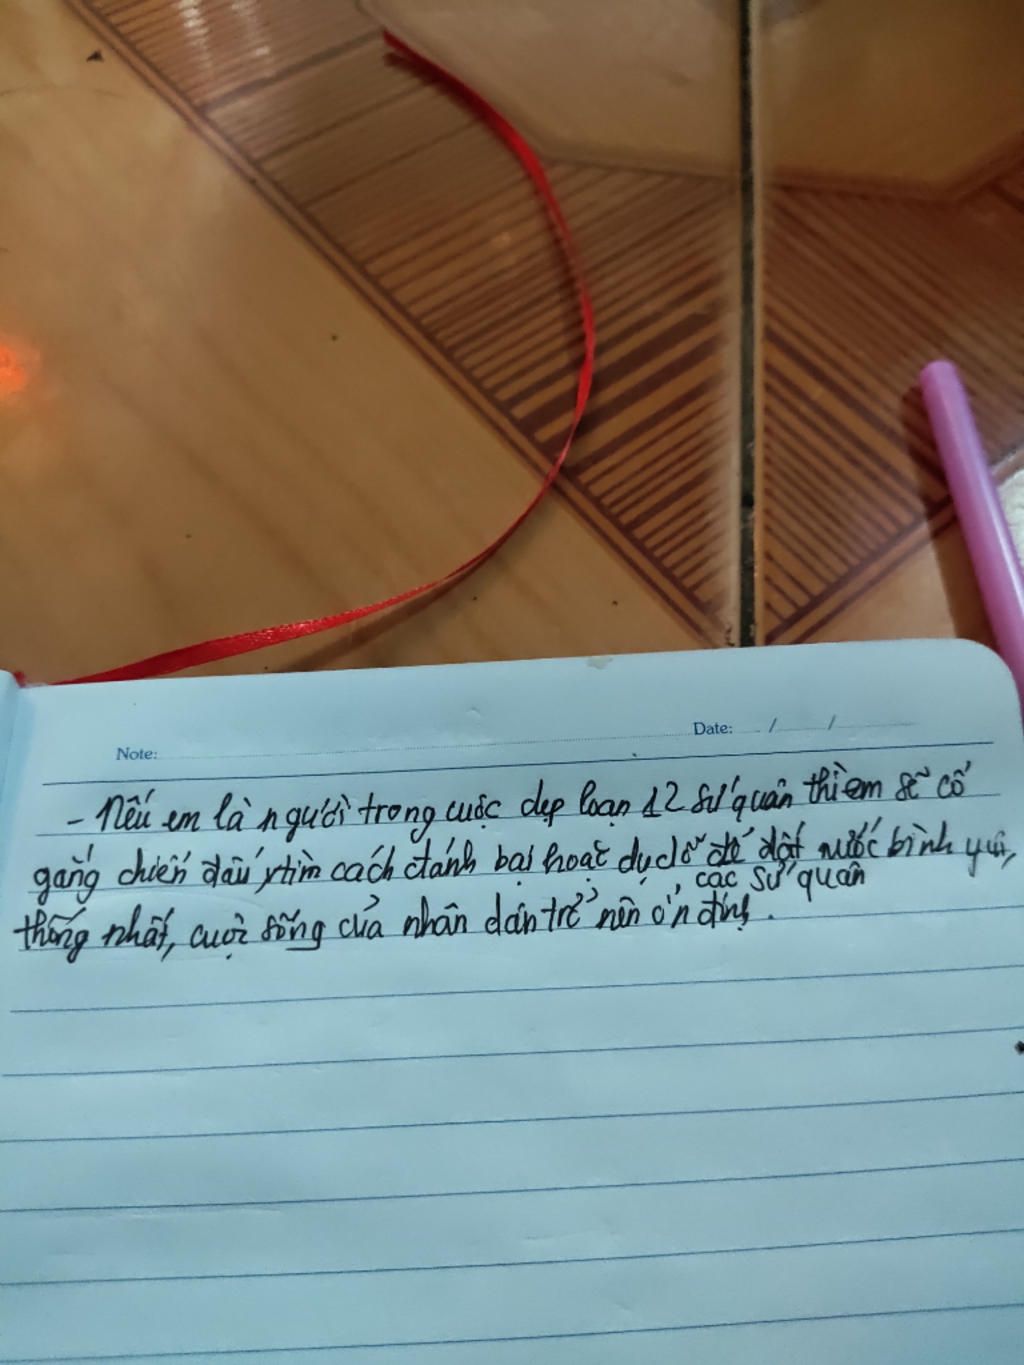 Note:
Date: / /
- Nếu em là người trong cuộc dẹp loạn 12 sứ quân thì em sẽ cố
gắng chiến đấu, tìm cách đánh bại hoặc dụ dỗ để đất nước bình yên,
các sứ quân
thống nhất, cuộc sống của nhân dân trở nên ổn định.